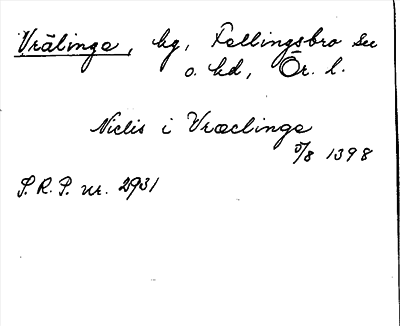 Vrälinge, by, Fellingsbro sn
o. hd, Ör. l.
Niclis i Vræclinge
5/8 1398
S.R.P. nr. 2931